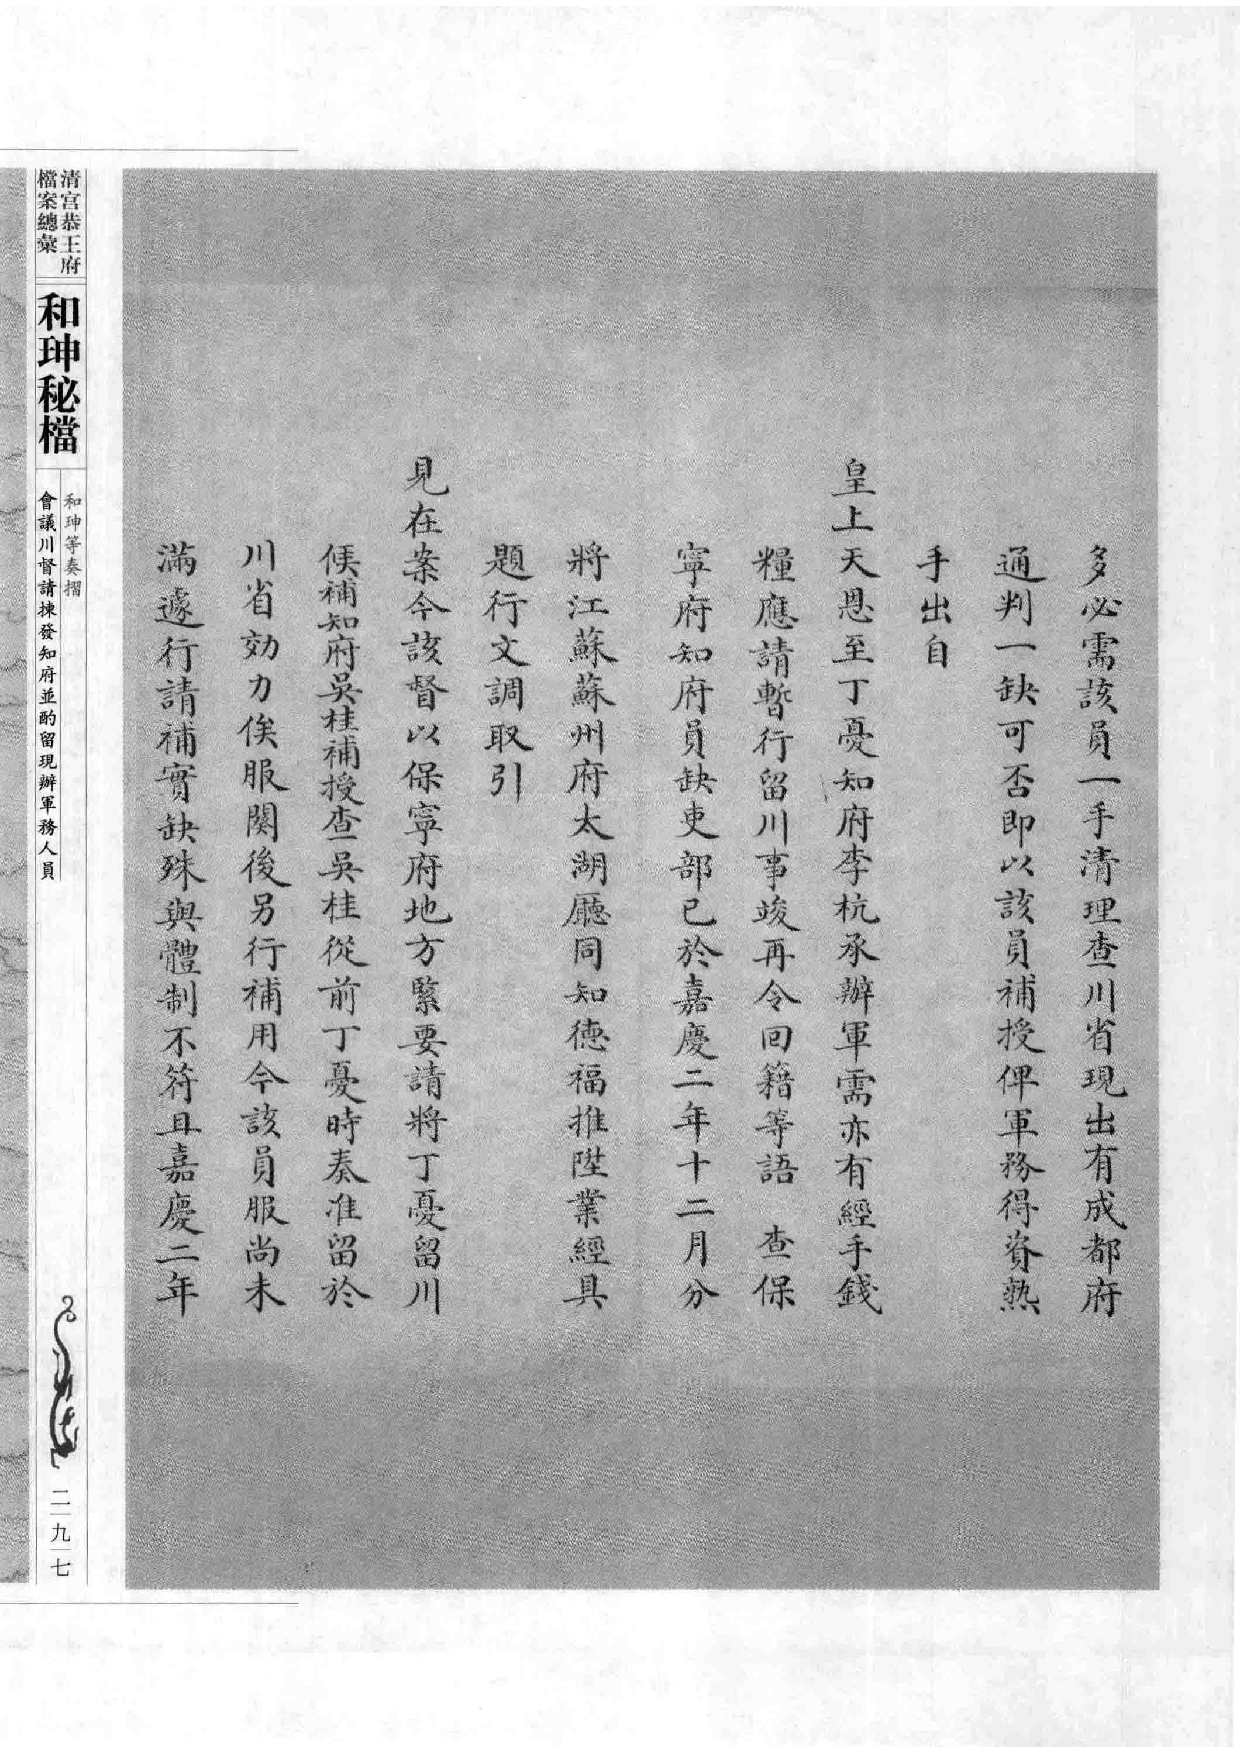 多必需該員一手清理查川省現出有成都府
通判一缺可否即以該員補授俾軍務得資熟
手出自
皇上天恩至丁憂知府李杭承辦軍需亦有經手錢
糧應請暫行留川事竣再令回籍等語 查保
寧府知府員缺吏部已於嘉慶二年十二月分
將江蘇蘇州府太湖廳同知德福推陞業經具
題行文調取引
見在案今該督以保寧府地方緊要請將丁憂留川
候補知府吳桂補授查吳桂從前丁憂時奏准留於
川省効力俟服闋後另行補用今該員服尚未
滿遽行請補實缺殊與體制不符且嘉慶二年
清宮恭王府
檔案總彙
和珅秘檔
和珅等奏摺
會議川督請揀發知府並酌留現辦軍務人員
二九七